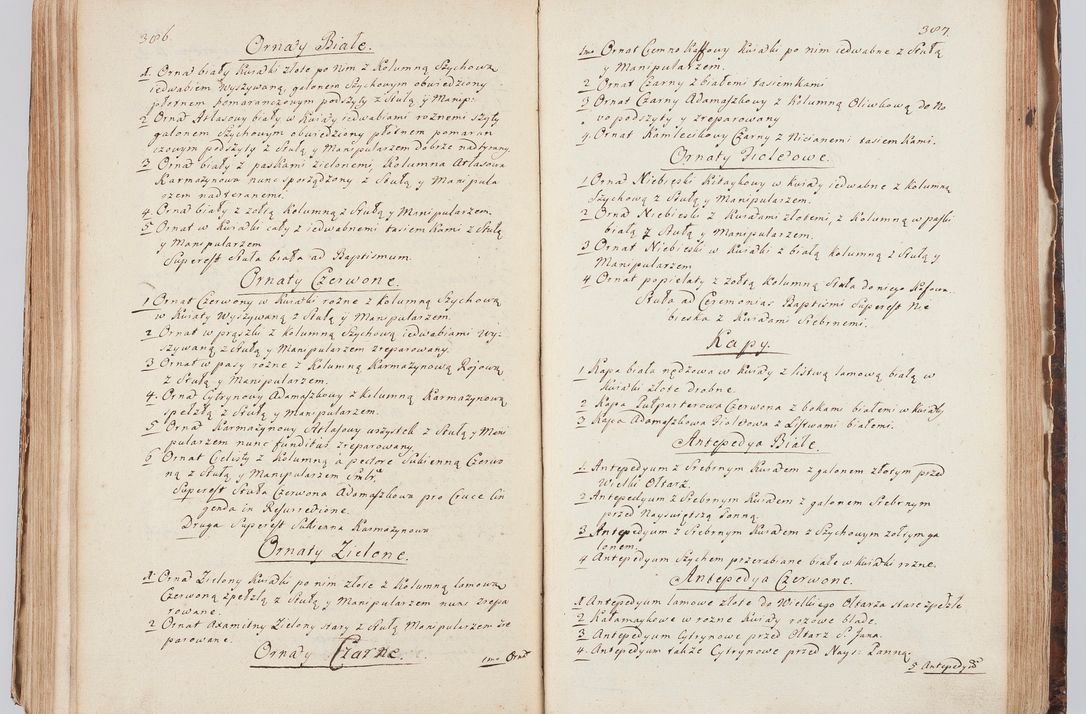 386.
Ornaty Białe.
1. Ornat biały Kwiatki złote po nim z Kolumną Szychową
iedwabiem Wyszywaną, galonem Szychowym obwiedziony
płotnem pomaranczowym podszyty z Stułą y Manip:
2 Ornat Atłasowy biały w Kwiaty iedwabiami roznemi szyty
galonem Szychowym obwiedziony płotnem pomaran
czowym podszyty z Stułą y Manipularzem dobrze nadtyrany.
3 Ornat biały z paskami zielonemi, Kolumna Atłasowa
Karmazynowa nunc sporządzony z Stułą y Manipula
rzem nadteranemi.
4. Ornat biały z zołtą Kolumną z Stułą y Manipularzem.
5 Ornat w Kwiatki cały z iedwabnemi tasiemkami z Stułą
y Manipularzem
Superest Stuła biała ad Baptismum.
Ornaty Czerwone.
1 Ornat Czerwony w Kwiatki rożne z Kolumną Szychową
w Kwiaty Wyszywaną z Stułą y Manipularzem.
2 Ornat w prązki z Kolumną Szychową iedwabiami wy-
szywaną z Stułą y Manipularzem zreparowany.
3 Ornat w pasy rożne z Kolumną Karmazynową
z Stułą y Manipularzem.
4. Ornat Cytrynowy Adamaszkowy z Kolumną Karmazynową
spełzłą z Stułą y Manipularzem.
5 Ornat Karmazynowy Atłasowy wszystek z Stułą y Mani
pularzem nunc funditus zreparowany
6 Ornat Celisty z Kolumną a pectore Sukienną Czerwo
ną z Stułą y Manipularzem
Superest Stuła Czerwona Adamaszkowa pro Cruce lin
genda in Resurrectione.
Druga Superest Sukienna Karmazynowa
Ornaty Zielone.
1. Ornat Zielony Kwiatki po nim złote z Kolumną lamową
Czerwoną zpełzłą z Stułą y Manipularzem nunc zrepa
rowane.
2. Ornat Axamitny Zielony stary z Stułą Manipularzem zre
parowane.
Ornaty Czarne.
1mo Ornat
387.
1mo Ornat Ciemno Kaffowy Kwiatki po nim iedwabne z Stułą
y Manipularzem.
2 Ornat Czarny z białemi tasiemkami
3 Ornat Czarny Adamaszkowy z Kolumną Oliwkową do No
wo podszyty y zreparowany
4. Ornat Kamlecikowy Czarny z Nicianemi tasiemkami.
Ornaty Fioletowe.
1 Ornat Niebieski Kitaykowy w Kwiaty iedwabne z Kolumną
Szychową z Stułą y Manipularzem.
2 Ornat Niebieski z Kwiatami złotemi, z Kolumną w paski
białą z Stułą y Manipularzem.
3 Ornat Niebieski w Kwiatki z białą Kolumną z Stułą y
Manipularzem
4 Ornat popielaty z żołtą Kolumną Stuła do niego
Stuła ad Ceremonias Baptismi Superest Nie
bieska z Kwiatami Srebrnemi.
Kapy.
1. Kapa biała nędzowa w Kwiaty z listwą lamową białą w
Kwiatki złote drobne.
2 Kapa Pułparterowa Czerwona z bokami białemi w Kwiaty
3 Kapa Adamaszkowa Fioletowa z Listwami białemi.
Antepedya Białe.
1. Antepedyum z Srebrnym Kwiatem z galonem złotym przed
Wielki Ołtarz.
2 Antepedyum z Srebrnym Kwiatem z galonem Srebrnym
przed Nayświętszą Panną.
3 Antepedyum z Srebrnym Kwiatem z Szychowym zołtym ga
lonem.
4 Antepedyum Szychem przerabiane białe w Kwiatki rożne.
Antepedya Czerwone.
1 Antepedyum lamowe złote do Wielkiego Ołtarza stare zpełzłe
2 Kałamaykowe w rożne Kwiaty rozowe blade.
3 Antepedyum Cytrynowe przed Ołtarz S. Jana.
4. Antepedyum także Cytrynowe przed Nayś: Panną.
5 Antepedyum